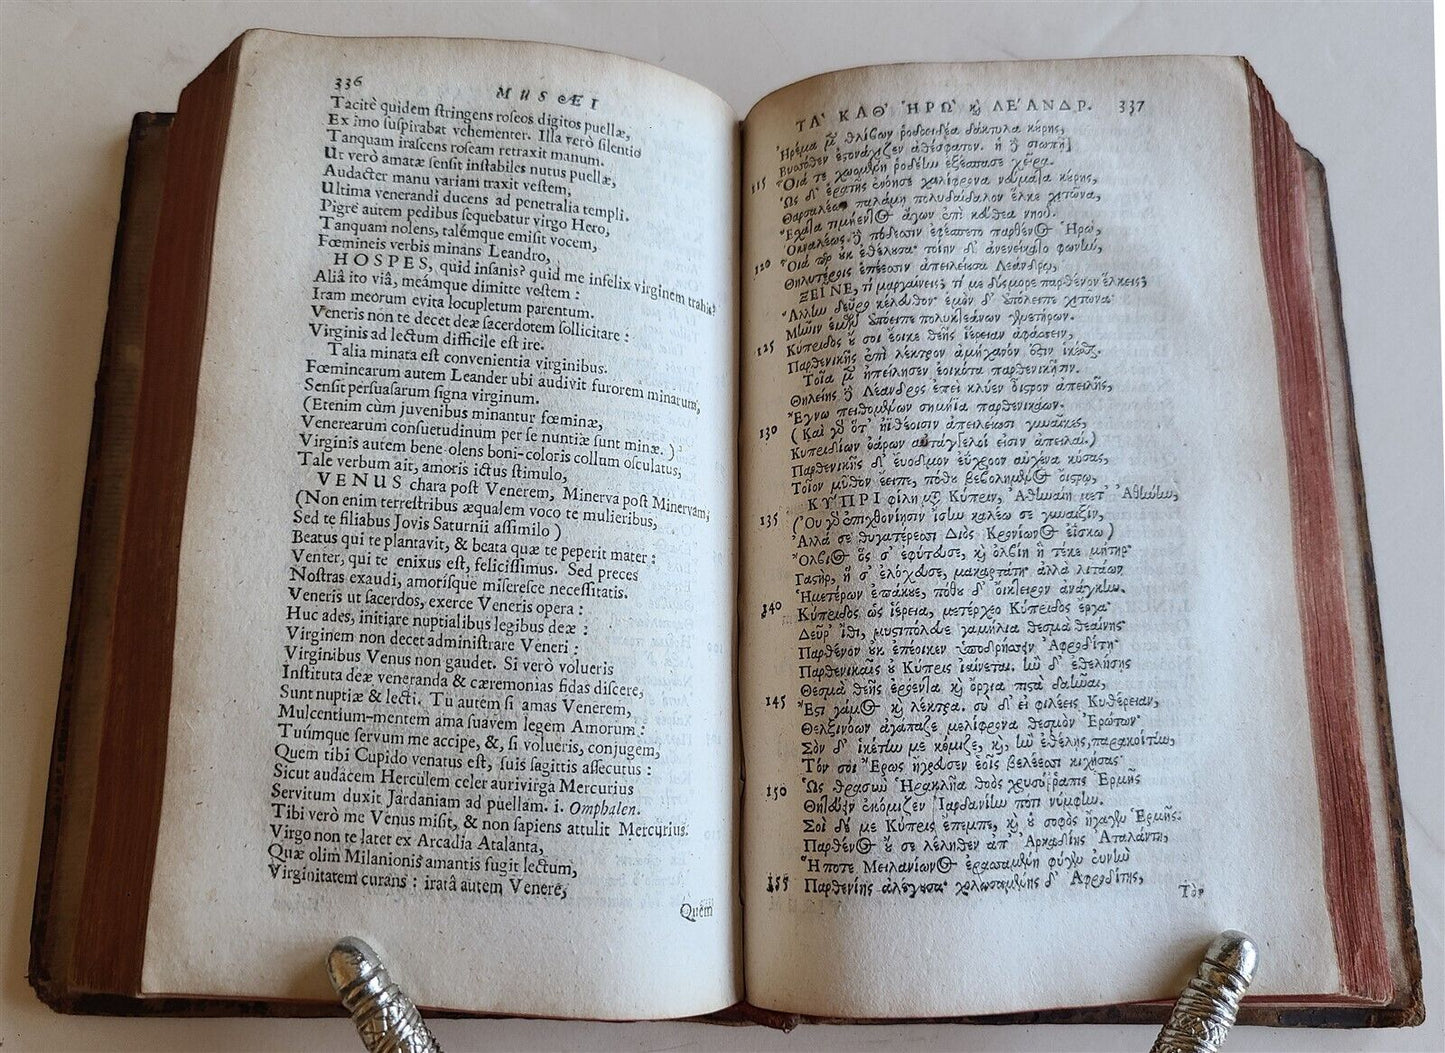 336
MUSÆI
Tacitè quidem ſtringens roſeos digitos puellæ,
Ex imo ſuſpirabat vehementer. Illa verò ſilentio
Tanquam iraſcens roſeam retraxit manum.
Ut verò amatæ ſenſit inſtabiles nutus puellæ,
Audacter manu variam traxit veſtem,
Ultima venerandi ducens ad penetralia templi.
Pigrè autem pedibus ſequebatur virgo Hero,
Tanquam nolens, talémque emiſit vocem,
Fœmineis verbis minans Leandro,
HOSPES, quid inſanis? quid me infelix virginem trahis?
Aliâ ito viâ, meámque dimitte veſtem :
Iram meorum evita locupletum parentum.
Veneris non te decet deæ ſacerdotem ſollicitare :
Virginis ad lectum difficile eſt ire.
Talia minata eſt convenientia virginibus.
Fœminearum autem Leander ubi audivit furorem minarum,
Senſit perſuaſarum ſigna virginum.
(Etenim cùm juvenibus minantur fœminæ,
Venerearum conſuetudinum per ſe nuntiæ ſunt minæ. )
Virginis autem bene olens boni-coloris collum oſculatus,
Tale verbum ait, amoris ictus ſtimulo,
VENUS chara poſt Venerem, Minerva poſt Minervam;
(Non enim terreſtribus æqualem voco te mulieribus,
Sed te filiabus Jovis Saturnii aſſimilo )
Beatus qui te plantavit, & beata quæ te peperit mater :
Venter, qui te enixus eſt, feliciſſimus. Sed preces
Noſtras exaudi, amoriſque miſereſce neceſſitatis.
Veneris ut ſacerdos, exerce Veneris opera :
Huc ades, initiare nuptialibus legibus deæ :
Virginem non decet adminiſtrare Veneri :
Virginibus Venus non gaudet. Si verò volueris
Inſtituta deæ veneranda & cæremonias fidas diſcere,
Sunt nuptiæ & lecti. Tu autem ſi amas Venerem,
Mulcentium-mentem ama ſuavem legem Amorum :
Tuúmque ſervum me accipe, &, ſi volueris, conjugem,
Quem tibi Cupido venatus eſt, ſuis ſagittis aſſecutus :
Sicut audacem Herculem celer aurivirga Mercurius
Servitum duxit Jardaniam ad puellam. i. Omphalen.
Tibi verò me Venus miſit, & non ſapiens attulit Mercurius.
Virgo non te latet ex Arcadia Atalanta,
Quæ olim Milanionis amantis fugit lectum,
Virginitatem curans : iratâ autem Venere,
Quem
ΤΑ' ΚΑΘ' ἩΡΩ' ϗ ΛΕ'ΑΝΔΡ. 337
Ἠρέμα μ̃ θλίβων ῥοδοειδέα δάκτυλα κύρης,
Βυσσόθεν ἐστονάχιζεν ἀθέσφατον. ἡ ἢ σιωπῇ
115 Οἷά τε χωομένη ῥοδέην ἐξέσπασε χεῖρα.
Ὡς δ' ἐρατῆς ἐνόησε χαλίφρονα νεύματα κύρης,
Θαρσαλέως παλάμῃ πολυδαίδαλον ἕλκε χιτῶνα,
Ἔσχατα τιμήεντος ἄγων ἐπὶ κεύθεα νηοῦ.
Ὀκναλέως ἢ πόδεσσιν ἐφέσπετο παρθένος Ἡρώ,
120 Οἷά περ ἐκ ἐθέλουσα· τοίην δ' ἀνενείκατο φωνὴν,
Θηλυτέροις ἐπέεσσιν ἀπειλείουσα Λεάνδρῳ,
ΞΕΙ͂ΝΕ, τί μαργαίνεις; τί με δύσμορε παρθένον ἕλκεις;
Ἄλλην δεῦρο κέλευθον· ἐμὸν δ' ἀπόλειπε χιτῶνα·
Μῆνιν ἐμῶν ἀπόειπε πολυκτεάνων γενετήρων.
125 Κύπριδος ὔ σοι ἔοικε θεῆς ἱέρειαν ἀφάσσειν,
Παρθενικῆς ἐπὶ λέκτρον ἀμήχανόν ἐστιν ἱκέσθαι.
Τοῖα μ̃ ἠπείλησεν ἐοικότα παρθενικῇσιν.
Θηλείης ἢ Λέανδρος ἐπεὶ κλύεν οἶστρον ἀπειλῆς,
Ἔγνω πειθομένων σημήϊα παρθενικάων.
130 ( Καὶ γδ ὅτ' ἠϊθέοισιν ἀπειλείωσι γυναῖκες,
Κυπριδίων ὀάρων αὐτάγγελοί εἰσιν ἀπειλαί.)
Παρθενικῆς δ' εὔοδμον εὔχροον αὐχένα κύσας,
Τοῖον μῦθον ἔειπε, πόθου βεβολημένος οἴστρῳ,
ΚΥ'ΠΡΙ φίλη μτ̃ Κύπριν, Ἀθηναίη μετ' Ἀθήνην,
135 ( Οὐ γδ ἐπιχθονίῃσιν ἴσην καλέω σε γυναιξὶν,
Ἀλλά σε θυγατέρεσσι Διὸς Κρονίωνος ἐΐσκω )
Ὄλβιος ὅς σ' ἐφύτευσε, ϗ ὀλβίη ἣ τέκε μήτηρ·
Γαστὴρ, ἥ σ' ἐλόχευσε, μακαρτάτη· ἀλλὰ λιτάων
Ἡμετέρων ἐπάκουε, πόθου δ' οἴκτειρον ἀνάγκην.
140 Κύπριδος ὡς ἱέρεια, μετέρχεο Κύπριδος ἔργα·
Δεῦρ' ἴθι, μυστιπόλευε γαμήλια θεσμὰ θεαίνης·
Παρθένον ὐκ ἐπέοικεν ὑποδρήσσειν Ἀφροδίτῃ·
Παρθενικαῖς ὐ Κύπρις ἰαίνεται. ἢν δ' ἐθελήσῃς
Θεσμὰ θεῆς ἐρόεντα ϗ ὄργια πιστὰ δαῆναι,
145 Ἔστι γάμος ϗ λέκτρα. σὺ δ' εἰ φιλέεις Κυθέρειαν,
Θελξινόων ἀγάπαζε μελίφρονα θεσμὸν Ἐρώτων·
Σὸν δ' ἱκέτην με κόμιζε, ϗ, ἢν ἐθέλῃς, παρακοίτην,
Τόν σοι Ἔρως ἤγρευσεν ἑοῖς βελέεσσι κιχήσας·
Ὡς θρασὺν Ἡρακλῆα θοὸς χρυσόρραπις Ἑρμῆς
150 Θητεύειν ἐκόμιζεν Ἰαρδανίην ποτὶ νύμφην.
Σοὶ δέ με Κύπρις ἔπεμπε, ϗ ὐ σοφὸς ἤγαγεν Ἑρμῆς.
Παρθένος ὔ σε λέληθεν ἀπ' Ἀρκαδίης Ἀταλάντη,
Ἥ ποτε Μειλανίωνος ἐρασσαμένου φύγεν εὐνὴν
155 Παρθενίης ἀλέγουσα· χολωσαμένης δ' Ἀφροδίτης,
Τὸν